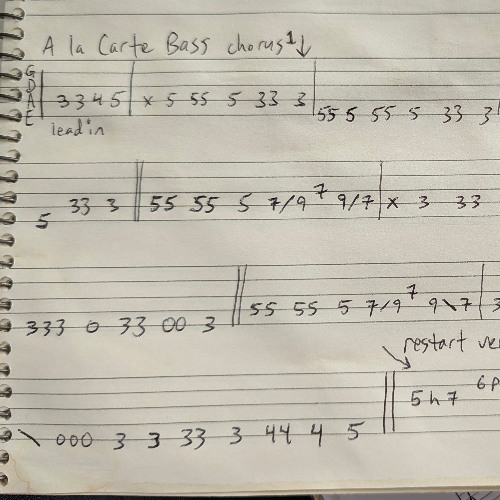 A la Carte Bass chorus 1 ↓
G
D
A
E
3 3 4 5 | x 5 55 5 33 3 | 55 5 55 5 33 3
lead in
5 33 3 || 55 55 5 7/9 7 9/7 | x 3 33
333 0 33 00 3 || 55 55 5 7/9 7 9\7 | 3
restart
\ 000 3 3 33 3 44 4 5 || 5h7 6p